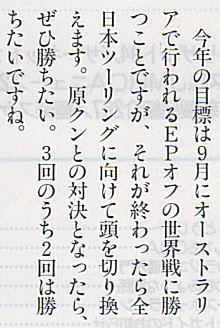 今年の目標は9月にオーストラリ
アで行われるEPオフの世界戦に勝
つことですが、それが終わったら全
日本ツーリングに向けて頭を切り換
えます。原クンとの対決となったら、
ぜひ勝ちたい。3回のうち2回は勝
ちたいですね。